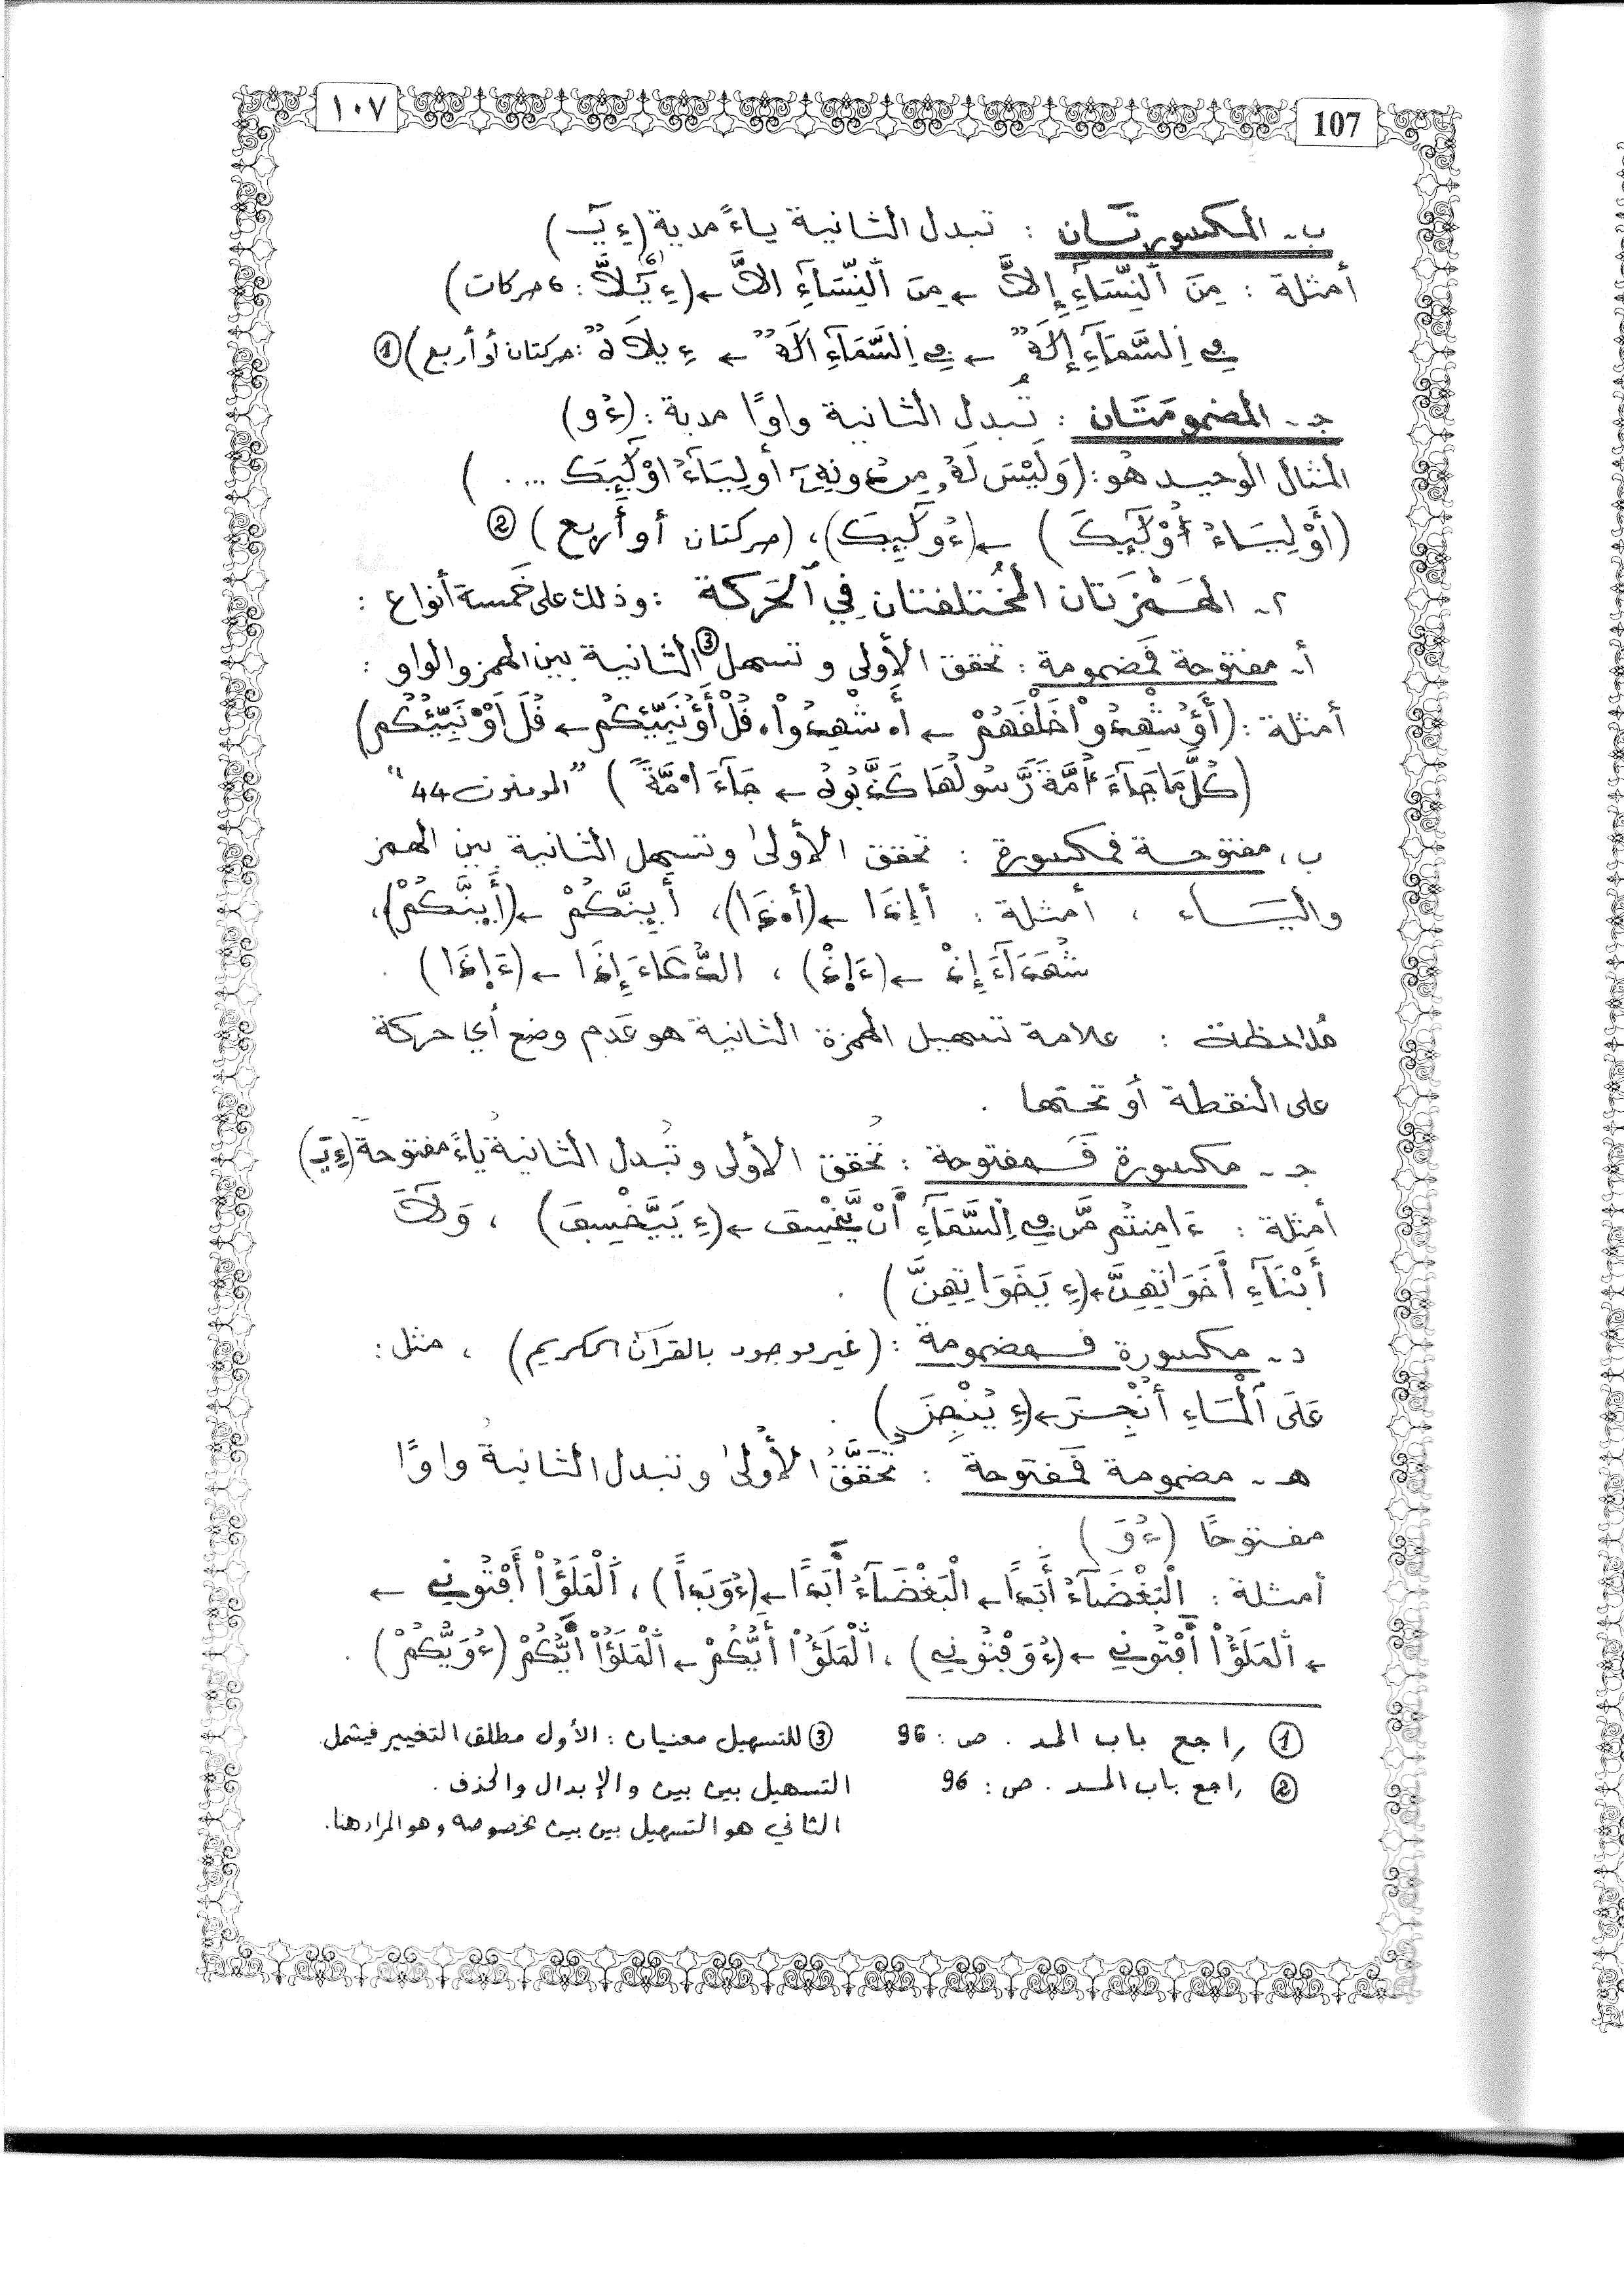 107
١٠٧
ب - المكسورتان : تبدل الثانية ياءً مدية (ءِ يـ)
أمثلة : مِنَ اَلنِّسَآءِ إِلاَّ ← مِنَ اَلنِّسَآءِ الاَّ ← (ءِ يلاَّ : 6 حركات)
فِي اِلسَّمَآءِ إِلَهٌ ← فِي اِلسَّمَآءِ الَهٌ ← ءِ يلَاهٌ : حركتان أو أربع) ①
جـ - المضمومتان : تُبدل الثانية واوًا مدية : (ءُ و)
المثال الوحيد هُو : (وَلَيْسَ لَهُ مِن دُونِهِ أَولِيَآءُ اوْلَٰٓئِكَ ... )
(أَوْلِيَآءُ اُوْلَٰٓئِكَ) ← (ءُ وكَٰٓئِكَ)، (حركتان أو أربع) ②
٢ - الهَمْزَتان المُختلفتان فِي اَلحَركة : وذلك على خَمسة أنواع :
أ - مفتوحة فمضمومة : تحقق الأولى وتسهل ③ الثانية بين الهمز والواو :
أمثلة : (أَؤُشْهِدُواْ خَلْقَهُمْ ← أَ. شْهِدُواْ، قُلْ أَؤُنَبِّئُكُم ← قُلَ اَوْ.نَبِّئُكُم)
(كُلَّمَا جَآءَ اُمَّةً رَّسُولُهَا كَذَّبُوهُ ← جَآءَ ا.مَّةً) "المومنون 44"
ب، مفتوحة فمكسورة : تحقق الأولىٰ وتسهل الثانية بين الهمز
والياء ، أمثلة : أإذَا ← (أ.ذَا)، أَينَّكُمْ ← (أَينَّكُمْ)،
شُهَدَآءَ إِذْ ← (ءَ اِذْ) ، الدُّعَاءَ إِذَا ← (ءَ اِذَا) .
مُلاحظة : علامة تسهيل الهمزة الثانية هو عَدم وضع أي حركة
على النقطة أو تحتها .
جـ - مكسورة فَـمفتوحة : تُحقق الأولى وتُبدل الثانيةُ ياءً مفتوحة (ءِ يَـ)
أمثلة : ءَامِنتُم مَّن فِي اِلسَّمَآءِ اَنْ يَّخْسِفَ ← (ءِ يَيَّخْسِفَ) ، وَلَآ
أَبْنَآءِ اَخَوَاتِهِنَّ ← (ءِ يَخَوَاتِهِنَّ) .
د - مكسورة فـمضمومة : (غير موجود بالقرآن الكريم) ، مثل :
عَلَى اَلْمَاءِ أُنْجِزَ ← (ءِ يُنْجِزَ) .
هـ - مضمومة فَمفتوحة : تُحَقَّقُ الأُولىٰ وتبدل الثانيةُ واوًا
مفتوحًا (ءُ وَ) .
أمثلة : اَلْبَغْضَآءُ أَبَداً ← الْبَغْضَآءُ اَبَداً ← (ءُ وَبَداً) ، اَلْمَلَؤُاْ أَفْتُونِي ←
← اَلْمَلَؤُاْ اَفْتُونِي ← (ءُ وَفْتُونِي) ، اَلْمَلَؤُاْ أَيُّكُمْ ← اَلْمَلَؤُاْ اَيُّكُمْ (ءُ وَيُّكُمْ) .
① راجع باب المد . ص : 96
② راجع باب المـد . ص : 96
③ للتسهيل معنيان : الأول مطلق التغيير فيشمل
التسهيل بين بين والإبدال والحذف .
الثاني هو التسهيل بين بين بخصوصه وهو المراد هنا .